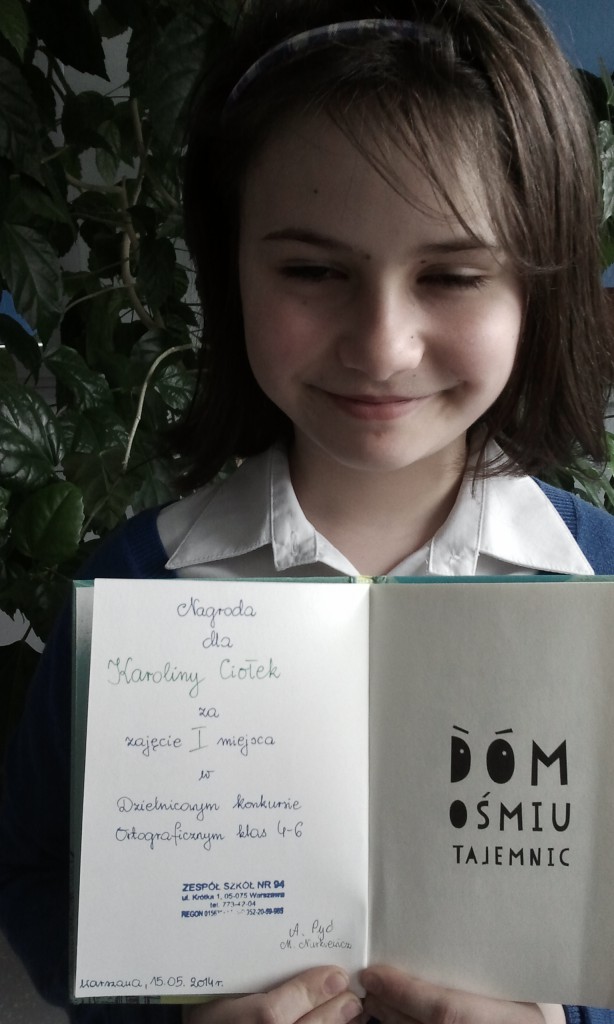 Nagroda
dla
Karoliny Ciołek
za
zajęcie I miejsca
w
Dzielnicowym konkursie
Ortograficznym klas 4-6
ZESPÓŁ SZKÓŁ NR 94
ul. Krótka 1, 05-075 Warszawa
tel. 773-42-04
REGON
A. Pyd
Warszawa, 15.05. 2014r.
DÓM
OŚMIU
TAJEMNIC